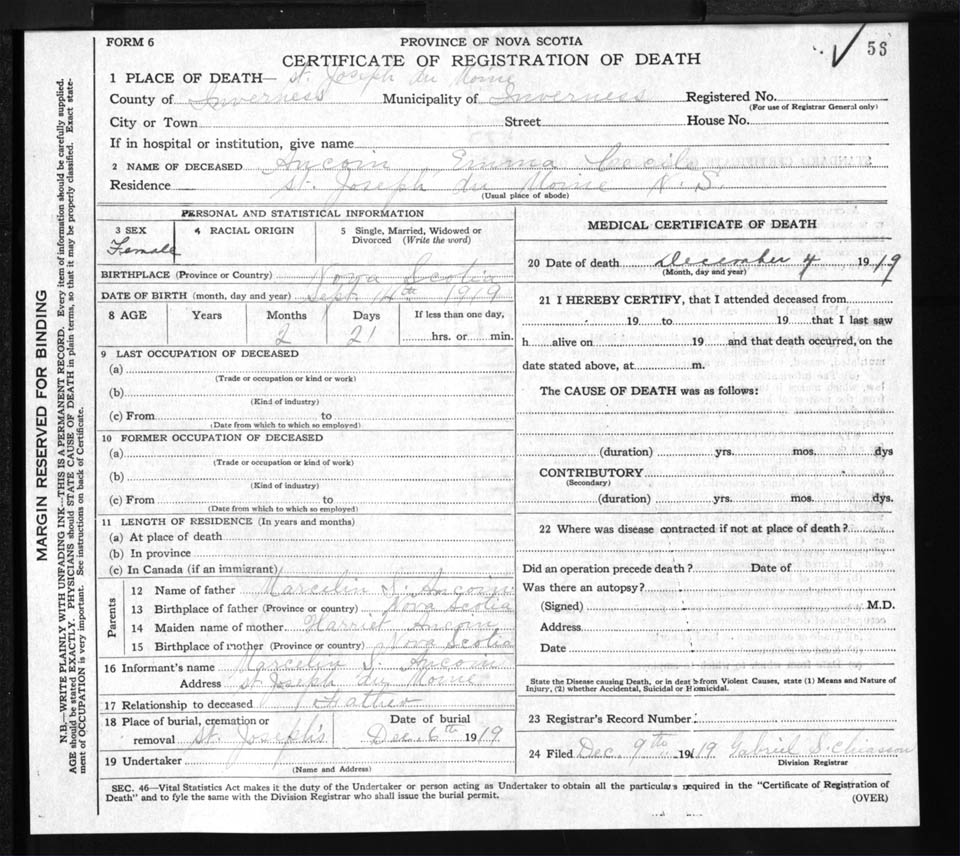 FORM 6
PROVINCE OF NOVA SCOTIA
58
CERTIFICATE OF REGISTRATION OF DEATH
1 PLACE OF DEATH— St. Joseph du Moine
County of Inverness Municipality of Inverness Registered No.
(For use of Registrar General only)
City or Town Street House No.
If in hospital or institution, give name
2 NAME OF DECEASED Aucoin Emma Cecile
Residence St. Joseph du Moine N.S.
(Usual place of abode)
PERSONAL AND STATISTICAL INFORMATION
3 SEX 4 RACIAL ORIGIN 5 Single, Married, Widowed or Divorced (Write the word)
Female
BIRTHPLACE (Province or Country) Nova Scotia
DATE OF BIRTH (month, day and year) Sept 14th 1919
8 AGE Years Months Days If less than one day,
2 21 hrs. or min.
9 LAST OCCUPATION OF DECEASED
(a)
(Trade or occupation or kind or work)
(b)
(Kind of industry)
(c) From to
(Date from which to which so employed)
10 FORMER OCCUPATION OF DECEASED
(a)
(Trade or occupation or kind of work)
(b)
(Kind of industry)
(c) From to
(Date from which to which so employed)
11 LENGTH OF RESIDENCE (In years and months)
(a) At place of death
(b) In province
(c) In Canada (if an immigrant)
Parents
12 Name of father Marcelin S. Aucoin
13 Birthplace of father (Province or country) Nova Scotia
14 Maiden name of mother Harriet Aucoin
15 Birthplace of mother (Province or country) Nova Scotia
16 Informant's name Marcelin S. Aucoin
Address St Joseph du Moine
17 Relationship to deceased Father
18 Place of burial, cremation or removal St. Joseph's
Date of burial Dec. 6th 1919
19 Undertaker
(Name and Address)
MEDICAL CERTIFICATE OF DEATH
20 Date of death December 4 1919
(Month, day and year)
21 I HEREBY CERTIFY, that I attended deceased from
19 to 19 that I last saw
h alive on 19 and that death occurred, on the
date stated above, at m.
The CAUSE OF DEATH was as follows:
(duration) yrs. mos. dys
CONTRIBUTORY
(Secondary)
(duration) yrs. mos. dys.
22 Where was disease contracted if not at place of death?
Did an operation precede death? Date of
Was there an autopsy?
(Signed) M.D.
Address
Date
State the Disease causing Death, or in deat s from Violent Causes, state (1) Means and Nature of
Injury, (2) whether Accidental, Suicidal or Homicidal.
23 Registrar's Record Number
24 Filed Dec. 9th 1919 Gabriel S. Chiasson
Division Registrar
SEC. 46—Vital Statistics Act makes it the duty of the Undertaker or person acting as Undertaker to obtain all the particulars required in the "Certificate of Registration of
Death" and to fyle the same with the Division Registrar who shall issue the burial permit.
(OVER)
MARGIN RESERVED FOR BINDING
N.B.—WRITE PLAINLY WITH UNFADING INK—THIS IS A PERMANENT RECORD. Every item of information should be carefully supplied.
AGE should be stated EXACTLY. PHYSICIANS should STATE CAUSE OF DEATH in plain terms, so that it may be properly classified. Exact state-
ment of OCCUPATION is very important. See instructions on back of Certificate.